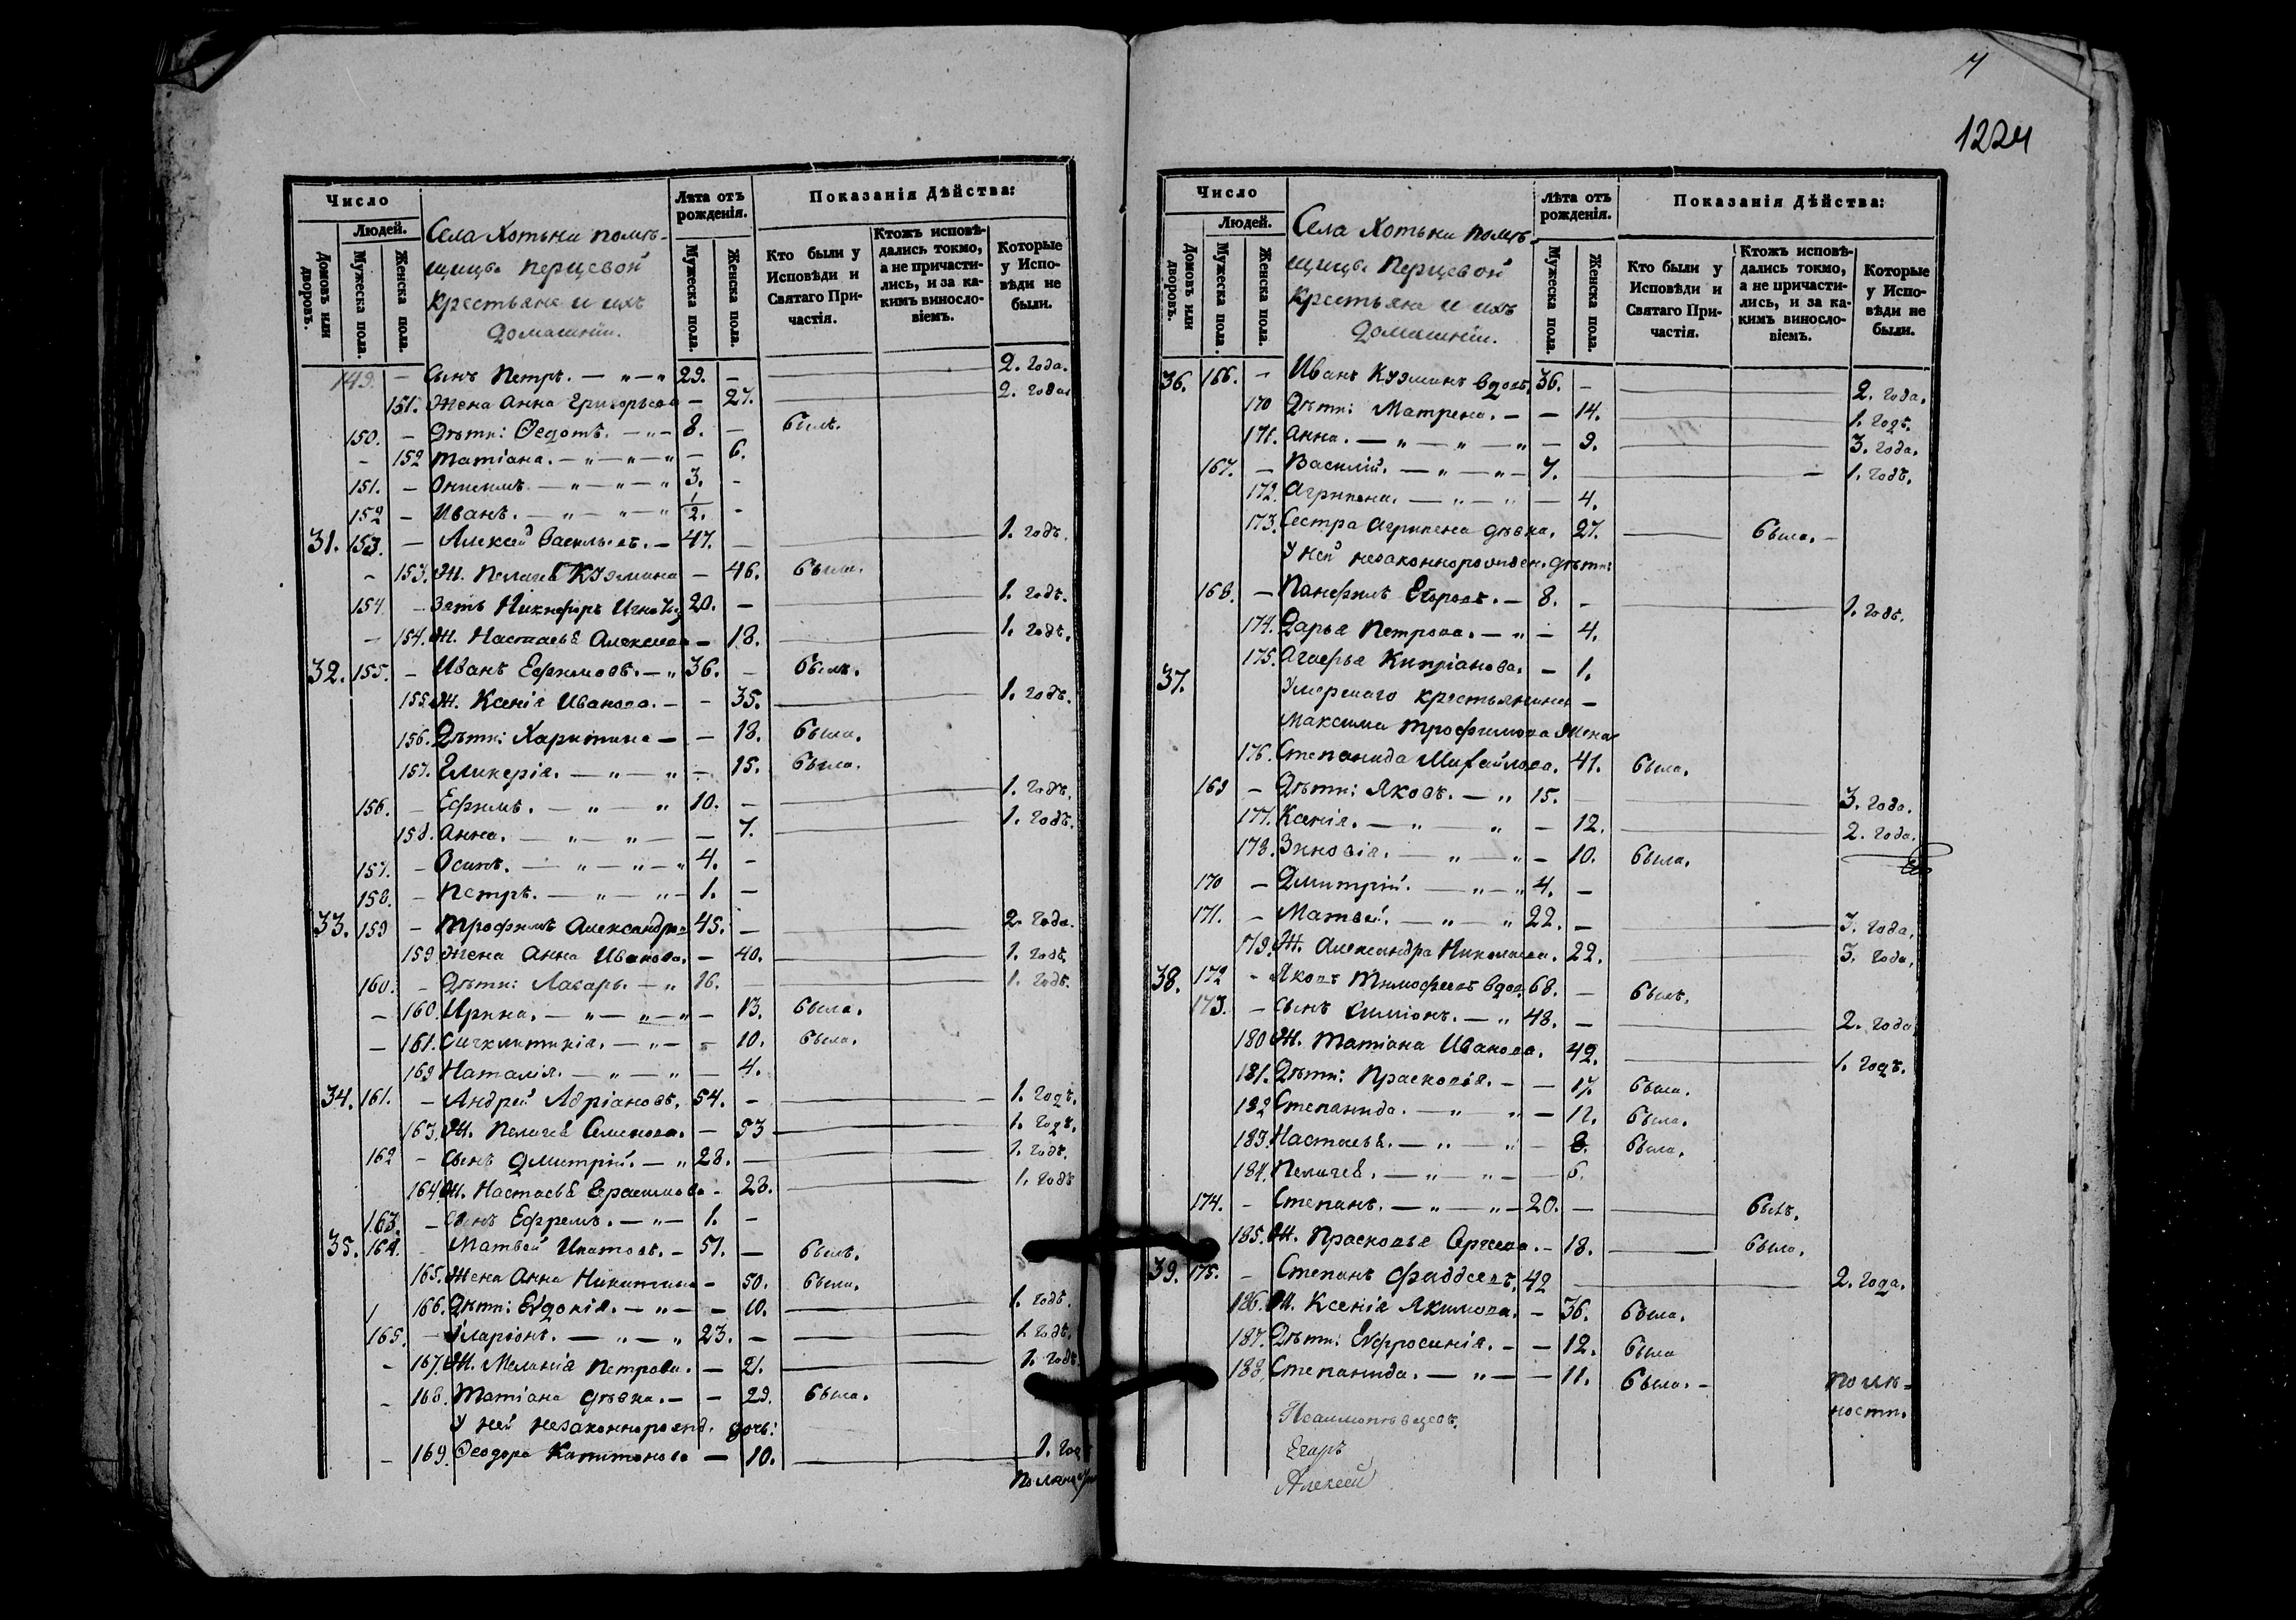 7
1224
Число
Людей.
Домовъ или дворовъ.
Мужеска пола.
Женска пола.
Села Хотьни помѣ-
щицы Перцевой
Крестьяне и ихъ
домашніи.
Лѣта отъ рожденія.
Мужеска пола.
Женска пола.
Показанія Дѣйства:
Кто были у Исповѣди и Святаго При-частія.
Ктожъ исповѣ-дались токмо, а не причасти-лись, и за ка-кимъ винosло-віемъ.
Которые у Испо-вѣди не были.
149. – Сынъ Петръ. – „ – „ 29. – 2. года.
151. Жена Анна Григорьева – 27. 2. года.
150. – Дѣти: Ѳедотъ. – „ – 8. – былъ.
– 152 Татіана. – „ – „ – „ – 6.
151. – Онисимъ. – „ – „ – „ 3. –
152 – Иванъ. – „ – „ – „ 1/2. –
31. 153. – Алексей Васильевъ. – 47. – 1. годъ.
– 153. Ж. Пелагея Кузмина – 46. была.
154. – Зять Никифоръ 20. – 1. годъ.
– 154. Ж. Настасья Алексеева – 18. 1. годъ.
32. 155. – Иванъ Ефимовъ. – „ 36. – былъ.
155. Ж. Ксенія Иванова. – – 35. 1. годъ.
156. Дѣти: Харитина – – 18. была.
157. Гликерія. – „ – „ – 15. была.
156. – Ефимъ. – „ – „ 10. – 1. годъ.
158. Анна. – „ – „ – – 7. 1. годъ.
157. – Осипъ. – „ – „ – „ 4. –
158. – Петръ. – „ – „ – 1. –
33. 159 – Трофимъ Александровъ 45. – 2. года.
159. Жена Анна Иванова. – 40. 1. годъ.
160. – Дѣти: Лазарь. – „ 16. – 1. годъ.
– 160. Ирина. – „ – „ – „ – 13. была.
– 161. Сигклитикія. – „ – – 10. была.
162 Наталія. – „ – „ – 4.
34. 161. – Андрей Адріановъ. 54. – 1. годъ.
163. Ж. Пелагея Семенова. – 53 1. годъ.
162 – Сынъ Дмитрій. – „ 28. – 1. годъ.
164 Ж. Настасья Герасимова – 23. 1. годъ
163. – Сынъ Ефремъ. – „ – 1. –
35. 164. – Матвей Ипатовъ. – 51. – былъ.
165. Жена Анна Никитина – 50. была.
166. Дѣти: Евдокія. – „ – – 10. 1. годъ.
165. – Иларіонъ. – „ – „ 23. – 1. годъ.
– 167. Ж. Меланія Петрова. – 21. 1. годъ.
– 168. Татіана дѣвка. – – 29. была.
У ней незаконнорожд. дочь:
– 169. Ѳеодора Капитонова – 10. 1. годъ
Число
Людей.
Домовъ или дворовъ.
Мужеска пола.
Женска пола.
Села Хотьни помѣ-
щицы Перцевой
Крестьяне и ихъ
домашніи.
Лѣта отъ рожденія.
Мужеска пола.
Женска пола.
Показанія Дѣйства:
Кто были у Исповѣди и Святаго При-частія.
Ктожъ исповѣ-дались токмо, а не причасти-лись, и за ка-кимъ винocло-віемъ.
Которые у Испо-вѣди не были.
36. 166. – Иванъ Кузминъ вдовъ. 36. – 2. года.
170 Дѣти: Матрена. – – 14. 1. годъ.
171. Анна. – „ – „ – „ – 9. 3. года.
167. – Василій. – „ – „ – 7. 1. годъ.
172. Агрипена. – „ – „ – 4.
173. Сестра Агрипена дѣвка. 27. была. –
У ней незаконнорожден. дѣти:
168. – Панфилъ Егоровъ. – 8. – 1. годъ.
174. Дарья Петрова. – „ – 4.
175. Агафья Кипріанова. – 1.
37. Умершаго крестьянина –
Максима Трофимова жена
176. Степанида Михайлова. 41. была.
169 – Дѣти: Яковъ. – „ 15. – 3. года.
177. Ксенія. – „ – „ – 12. 2. года.
178. Зиновія. – „ – „ – 10. была.
170 – Дмитрій. – „ – „ 4. –
171. – Матвей. – „ – „ 22. – 3. года.
179. Ж. Александра Николаева. 22. 3. года.
38. 172 – Яковъ Тимофеевъ вдов. 68. – былъ.
173. – Сынъ Симіонъ. – „ 48. – 2. года
180 Ж. Татіана Иванова. 42. 1. годъ.
181. Дѣти: Прасковія. – – 17. была.
182 Степанида. – „ – „ – 12. была.
183. Настасья. – „ – „ – 8. была.
184. Пелагея. – „ – „ – – 6.
174. – Степанъ. – „ – „ – 20. – былъ.
185. Ж. Прасковья Сергеева. – 18. была.
39. 175. – Степанъ Фаддеевъ. 42 2. года.
186. Ж. Ксенія Якимова. – 36. была.
187. Дѣти: Евфросинія. – – 12. была
188. Степанида. – „ – – 11. была. –
Псаломщовъ
Егоръ
Алексей